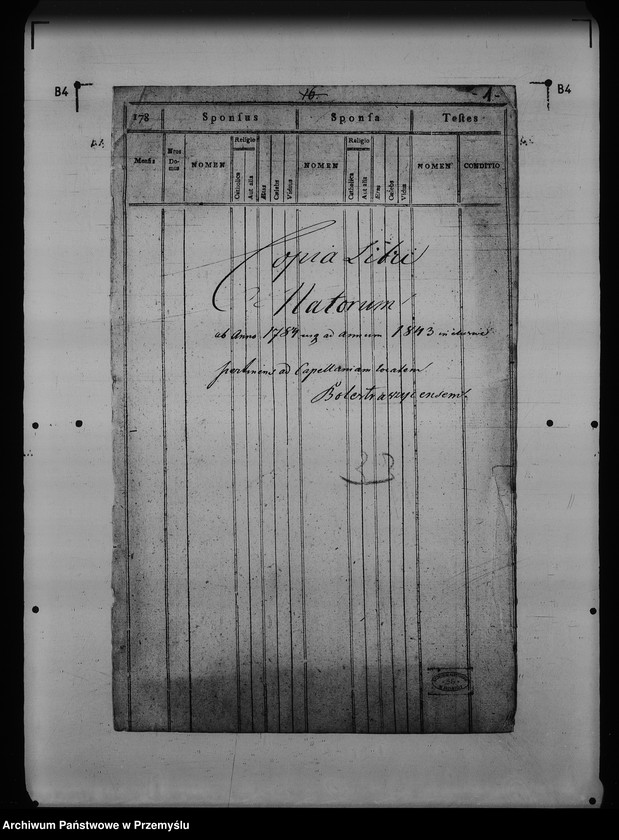 B4
16.
- 1 -
B4
178 Sponsus Sponsa Testes
Mensis Nrus Domus NOMEN Religio Catholica Aut alia Ætas Cælebs Viduus NOMEN Religio Catholica Aut alia Ætas Cælebs Vidua NOMEN CONDITIO
Copia Libri
Natorum
ab Anno 1784 usq ad annum 1843
pertinens ad Capellaniam localem
Bolestraszycensem
33
Archiwum Państwowe w Przemyślu